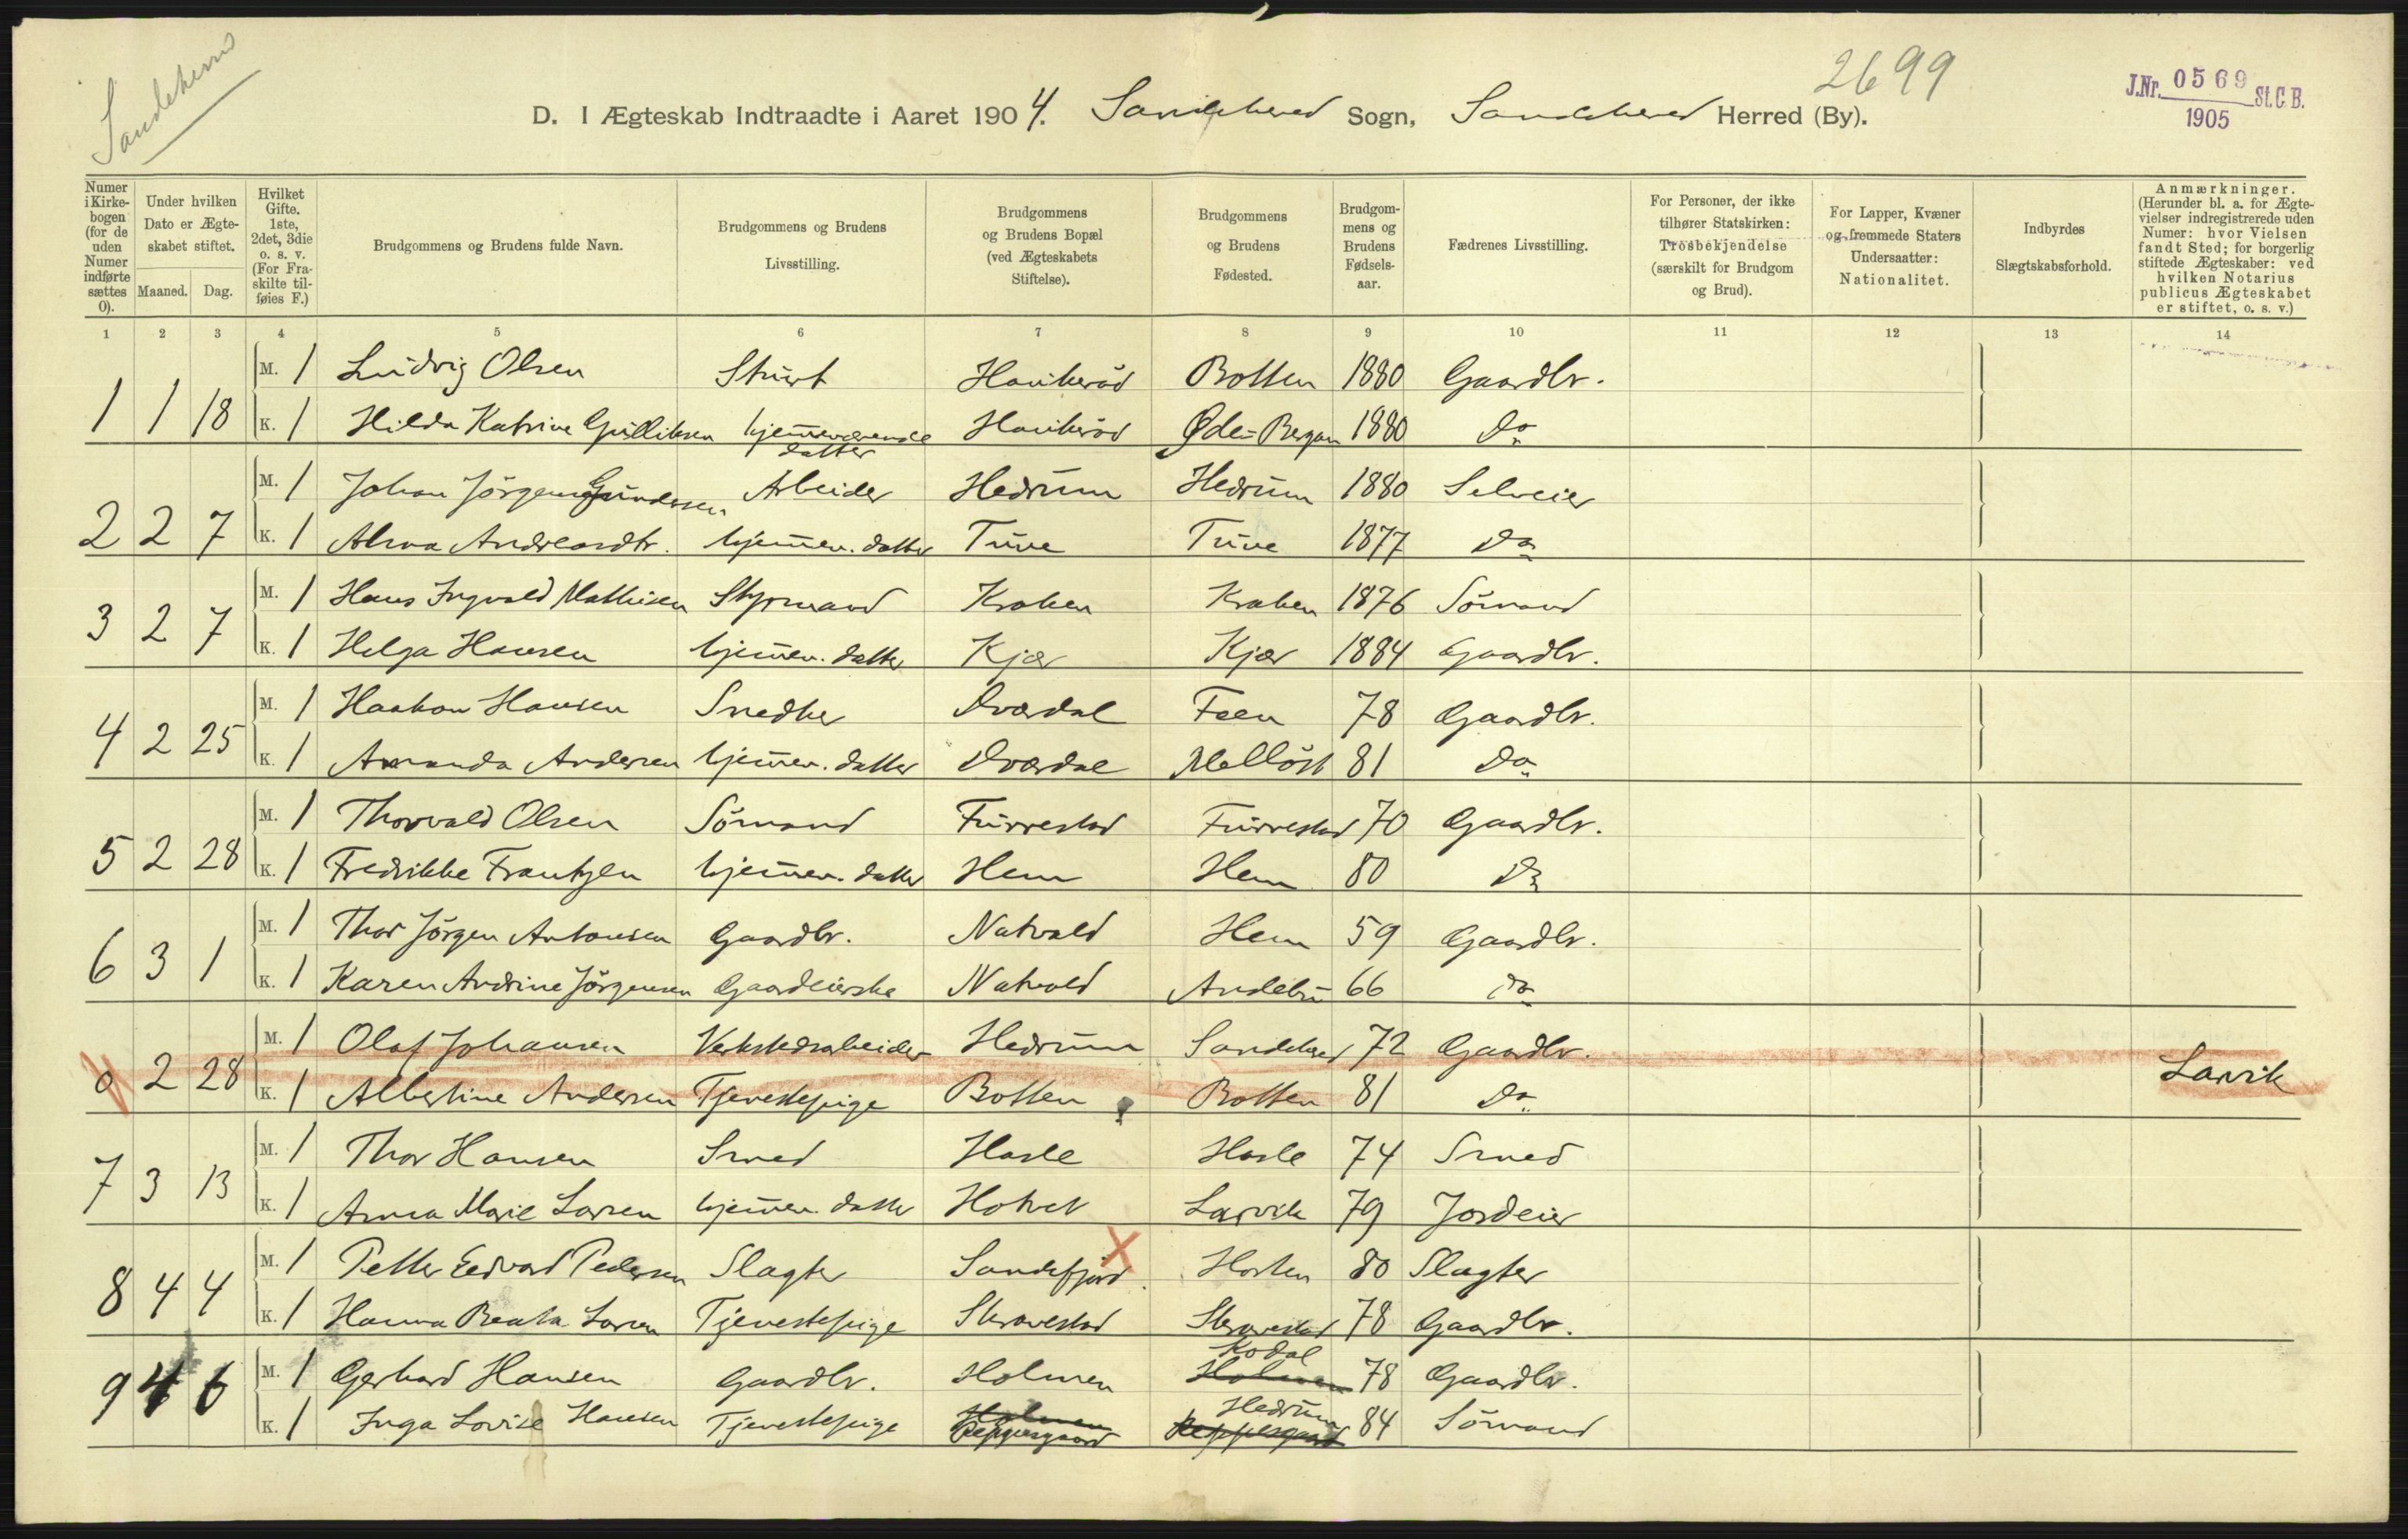 Sandeherred
2699
J.Nr. 0569 St.C.B.
1905
D. I Ægteskab Indtraadte i Aaret 1904. Sandeherred Sogn, Sandeherred Herred (By).
Numer i Kirkebogen (for de uden Numer indførte sættes 0).
Under hvilken Dato er Ægteskabet stiftet.
Maaned. Dag.
Hvilket Gifte. 1ste, 2det, 3die o. s. v. (For Fraskilte tilføies F.)
Brudgommens og Brudens fulde Navn.
Brudgommens og Brudens Livsstilling.
Brudgommens og Brudens Bopæl (ved Ægteskabets Stiftelse).
Brudgommens og Brudens Fødested.
Brudgommens og Brudens Fødselsaar.
Fædrenes Livsstilling.
For Personer, der ikke tilhører Statskirken: Trosbekjendelse (særskilt for Brudgom og Brud).
For Lapper, Kvæner og fremmede Staters Undersaatter: Nationalitet.
Indbyrdes Slægtskabsforhold.
Anmærkninger. (Herunder bl. a. for Ægtevielser indregistrerede uden Numer: hvor Vielsen fandt Sted; for borgerlig stiftede Ægteskaber: ved hvilken Notarius publicus Ægteskabet er stiftet, o. s. v.)
1 2 3 4 5 6 7 8 9 10 11 12 13 14
M. 1 Ludvig Olsen Stuert Haukerød Botten 1880 Gaardbr.
1 1 18 K. 1 Hilda Katrine Gulliksen hjemmeværende datter Haukerød Øde-Bergan 1880 Do
M. 1 Johan Jörgen Gundersen Arbeider Hedrum Hedrum 1880 Selveier
2 2 7 K. 1 Alma Andreasdtr. hjemmev. datter Tuve Tuve 1877 Do
M. 1 Hans Ingvald Mathisen Styrmand Kraken Kraken 1876 Sömand
3 2 7 K. 1 Helga Hansen hjemmev. datter Kjær Kjær 1884 Gaardbr.
M. 1 Haakon Hansen Snedker Dværdal Feen 78 Gaardbr.
4 2 25 K. 1 Amanda Andersen hjemmev. datter Dværdal Mellöst 81 Do
M. 1 Thorvald Olsen Sömand Furrestad Furrestad 70 Gaardbr.
5 2 28 K. 1 Fredrikke Frantzen hjemmev. datter Hem Hem 80 Do
M. 1 Thor Jörgen Antonsen Gaardbr. Natvald Hem 59 Gaardbr.
6 3 1 K. 1 Karen Andrine Jörgensen Gaardeierske Natvold Andebu 66 Do
M. 1 Olaf Johansen Verkstedsarbeider Hedrum Sandeherred 72 Gaardbr.
0 2 28 K. 1 Albertine Andersen Tjenestepige Botten Botten 81 Do Larvik
M. 1 Thor Hansen Smed Hasle Hasle 74 Smed
7 3 13 K. 1 Anna Marie Larsen hjemmev. datter Hotvet Larvik 79 Jordeier
M. 1 Petter Edvard Pedersen Slagter Sandefjord X Horten 80 Slagter
8 4 4 K. 1 Hanna Beata Larsen Tjenestepige Skravestad Skravestad 78 Gaardbr.
M. 1 Gerhard Hansen Gaardbr. Holmen Holmen Kodal 78 Gaardbr.
9 4 6 K. 1 Inga Lovise Hansen Tjenestepige Holmen Peppesgaard Peppesgaard Hedrum 84 Sömand